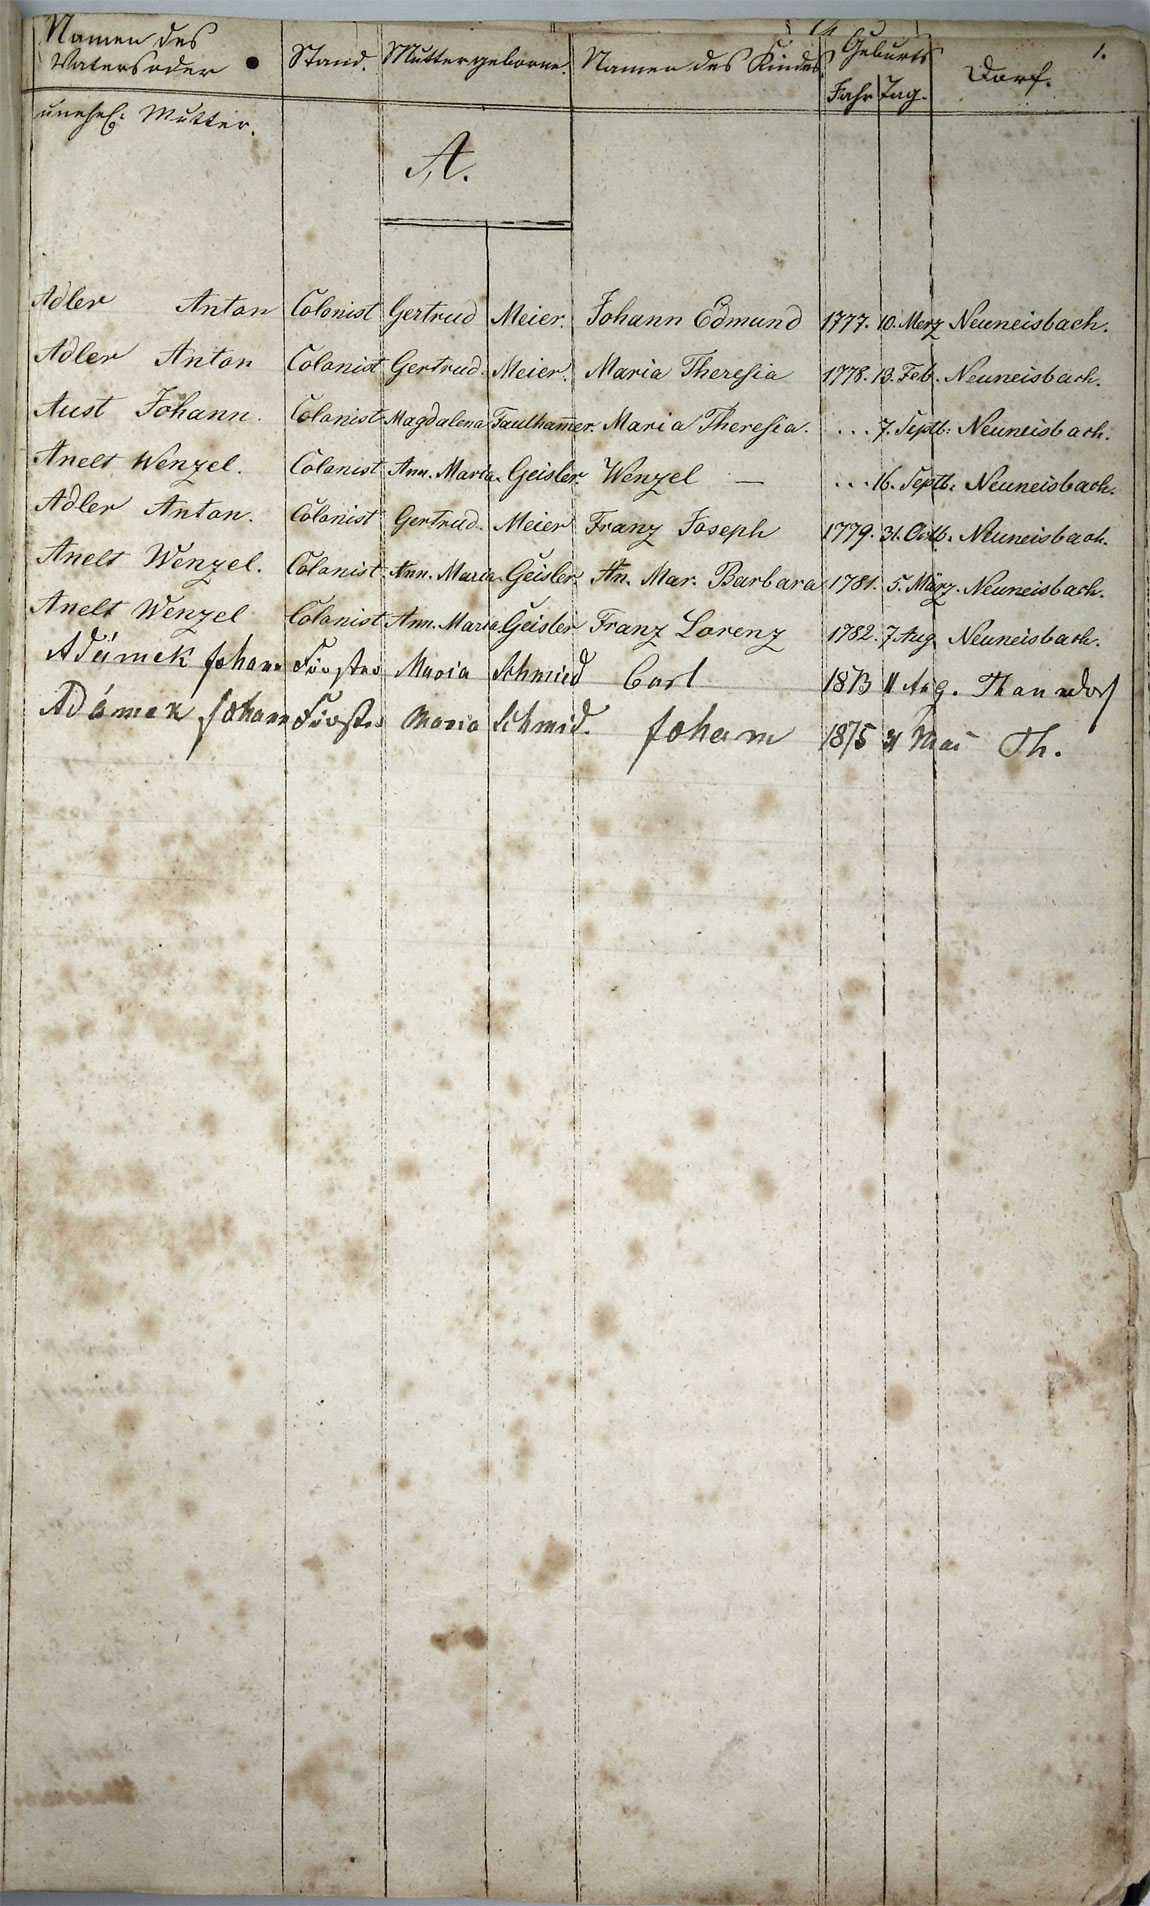 Namen des Vaters oder Stand. Mutter geborne. Namen des Kindes Geburts Dorf. 1.
unehel: Mutter. Jahr Tag.
A.
Adler Anton Colonist Gertrud Meier. Johann Edmund 1777. 10. Merz Neuneisbach.
Adler Anton Colonist Gertrud. Meier. Maria Theresia 1778. 13. Feb. Neuneisbach.
Aust Johann. Colonist Magdalena Faulham̅er. Maria Theresia. ... 7. Septb: Neuneisbach.
Anelt Wenzel. Colonist Ann. Maria. Geisler. Wenzel — ... 16. Septb: Neuneisbach.
Adler Anton. Colonist Gertrud. Meier Franz Joseph 1779. 31. Octb. Neuneisbach.
Anelt Wenzel. Colonist Ann. Maria. Geisler. An. Mar. Barbara 1781. 5. März. Neuneisbach.
Anelt Wenzel Colonist Ann. Maria Geisler Franz Lorenz 1782. 7 Aug. Neuneisbach.
Adámek Johann Förster Maria Schmied Carl 1873 11 Aug. Thanndorf
Adámek Johann Förster Maria Schmid. Johann 1875 31 Mai Th.